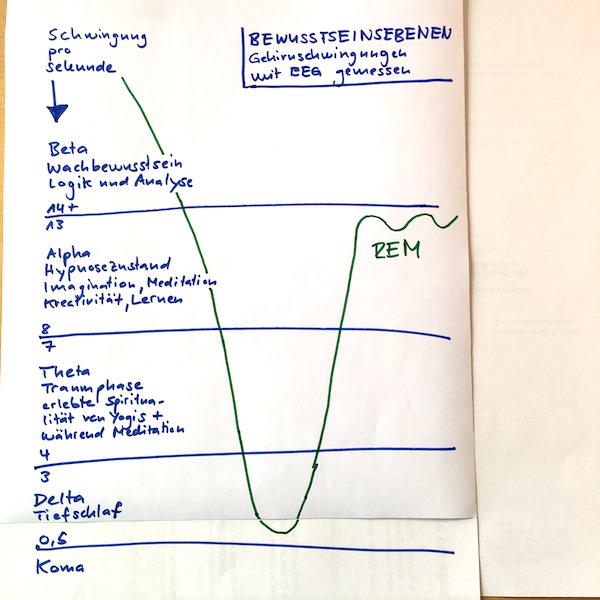 Schwingung
pro
sekunde
BEWUSSTSEINSEBENEN
Gehirnschwingungen
mit EEG gemessen
Beta
Wachbewusstsein
Logik und Analyse
14+
13
REM
Alpha
Hypnosezustand
Imagination, Meditation
Kreativität, Lernen
8
7
Theta
Traumphase
erlebte Spiritua-
lität von Yogis +
während Meditation
4
3
Delta
Tiefschlaf
0,5
Koma